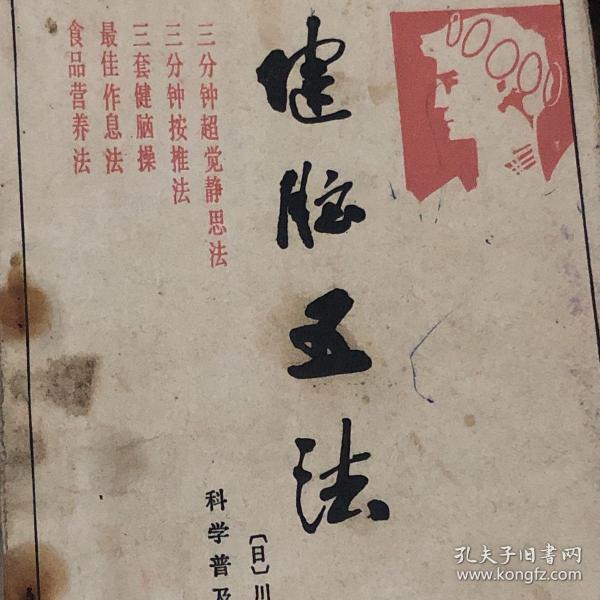 健脑五法
三分钟超觉静思法
三分钟按推法
三套健脑操
最佳作息法
食品营养法
〔日〕川
科学普及
孔夫子旧书网
www.kongfz.com